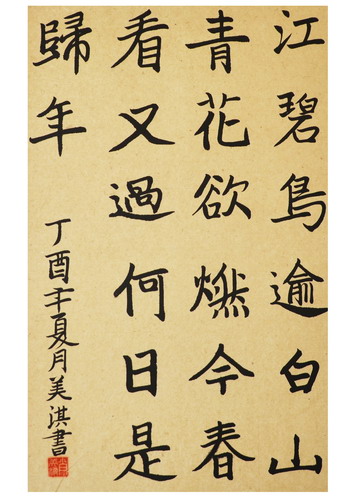 江碧鳥逾白山
青花欲燃今春
看又過何日是
歸年
丁酉年夏月美淇書